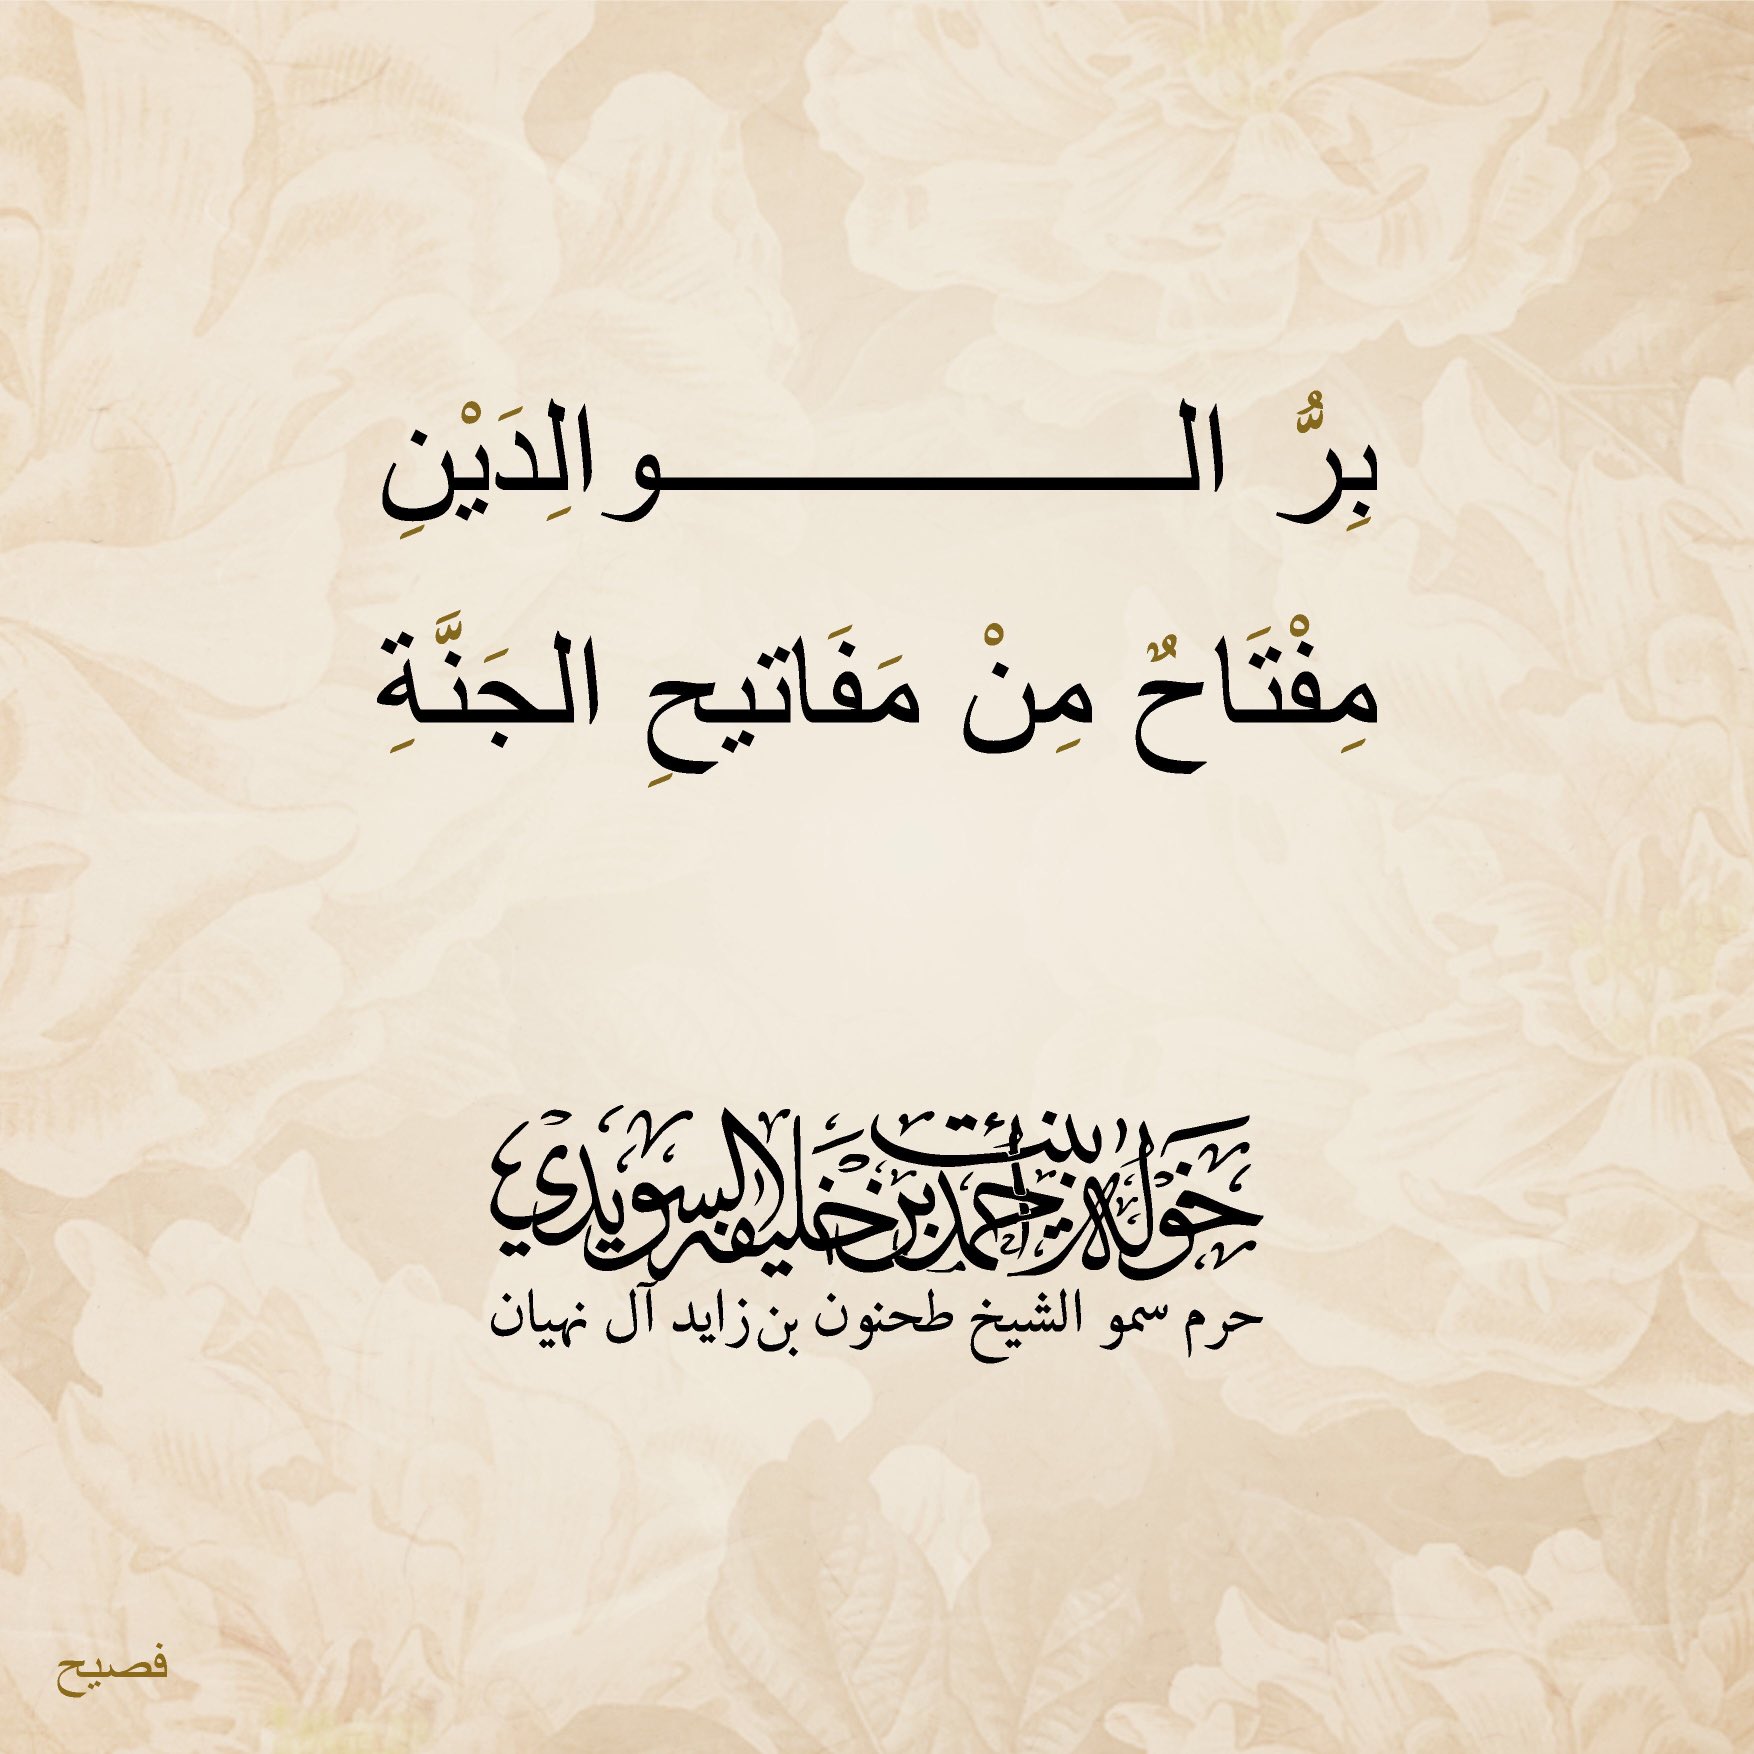 بِرُّ الـــــــــــــوالِدَيْنِ
مِفْتَاحٌ مِنْ مَفَاتيحِ الجَنَّةِ
خولة بنت أحمد بن خليفة السويدي
حرم سمو الشيخ طحنون بن زايد آل نهيان
فصيح